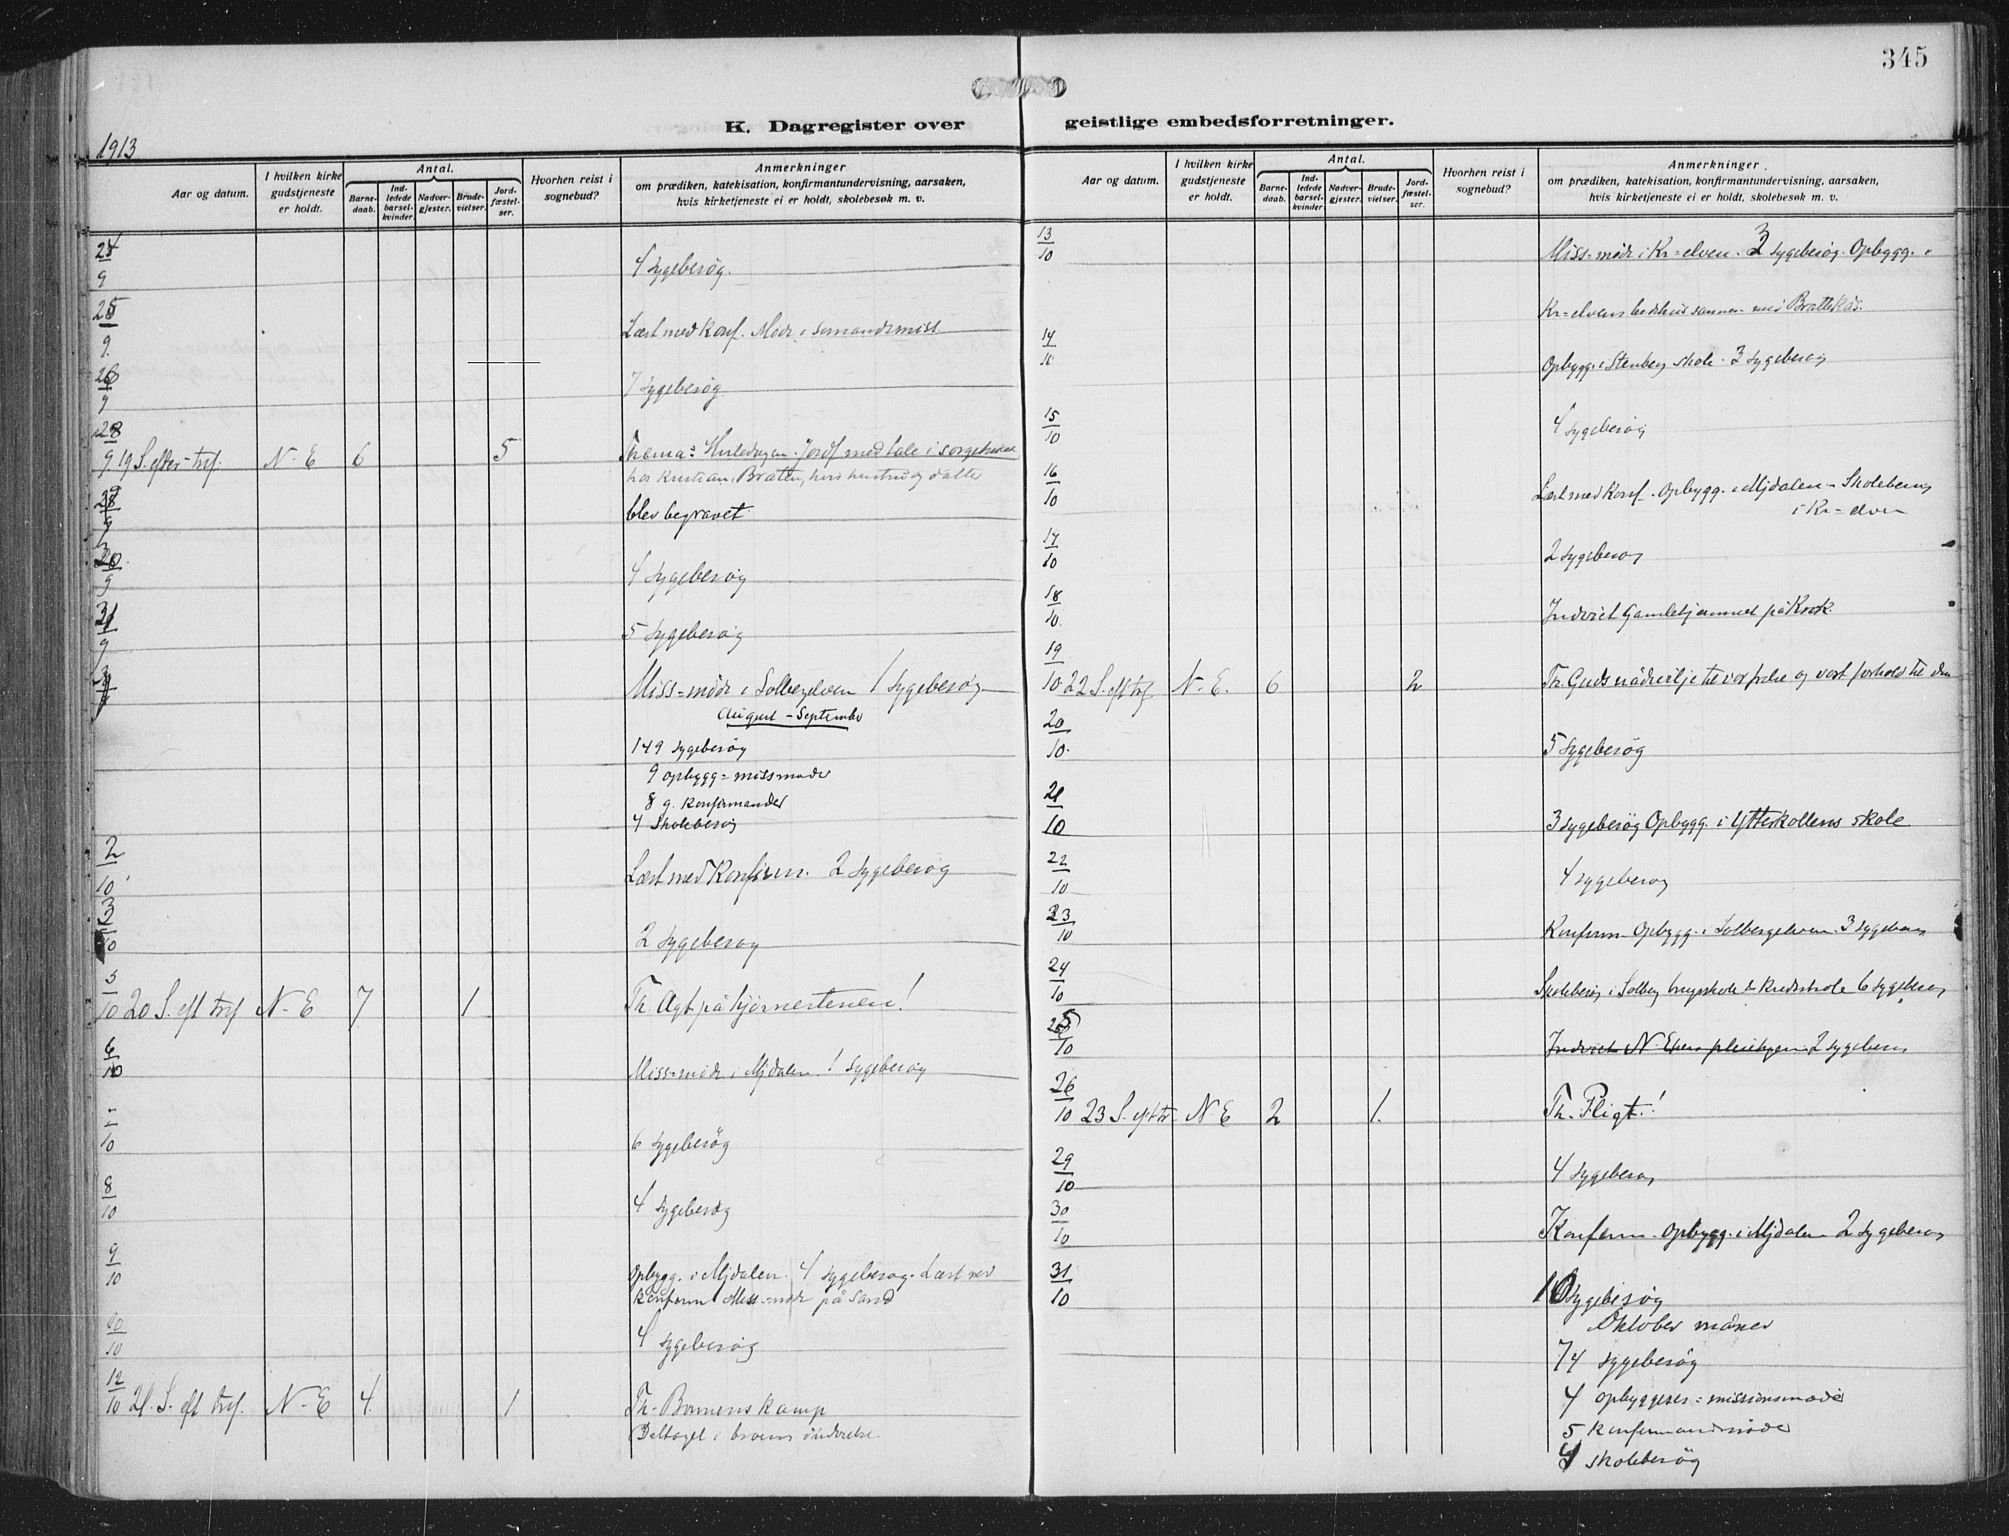 345
K. Dagregister over geistlige embedsforretninger.
1913
Aar og datum. I hvilken kirke gudstjeneste er holdt. Antal. Barnedaab. Indledede barselkvinder Nadvergjester. Brudevielser. Jordfæstelser. Hvorhen reist i sognebud? Anmerkninger om prædiken, katekisation, konfirmantundervisning, aarsaken, hvis kirketjeneste ei er holdt, skolebesøk m. v.
24/9 4 sygebesøg.
25/9 Læst med konf. Møde i sømandsmiss
26/9 7 sygebesøg
28/9 19 S. efter tref. N-E 6 5 Thema: Jordf med tale i sorgehuset
hos Kristian Braten, hvis hustru og datter
blev begravet.
4 sygebesøg
5 sygebesøg
Miss-møde i Solbergelven 1 sygebesøg
August - September
149 sygebesøg
9 opbygg = missmøder
8 g. konfirmander
4 Skolebesøg
2/10 Læst med Konfirm. 2 sygebesøg
3/10 2 sygebesøg
5/10 20 S. eft tref N-E 7 1 Th. Agt på hjørnestenen!
6/10 Miss-møde i Mjdalen 1 sygebesøg
/10 6 sygebesøg
8/10 4 sygebesøg
9/10 Opbygg. i Mjdalen. 4 sygebesøg. Læst med
konfirm Miss-møde på Sand
10/10 4 sygebesøg
12/10 21. S. eft tref. N-E 4 1 Th- Bønnens kamp
Deltaget i
Aar og datum. I hvilken kirke gudstjeneste er holdt. Antal. Barnedaab. Indledede barselkvinder Nadvergjester. Brudevielser. Jordfæstelser. Hvorhen reist i sognebud? Anmerkninger. om prædiken, katekisation, konfirmantundervisning, aarsaken, hvis kirketjeneste ei er holdt, skolebesøk m. v.
13/10 Miss-møde i Kr=elven. 3 sygebesøg. Opbygg. i
Kr=elvens bedehus sammen med Brattekås.
14/10 Opbygg. i Stenberg skole. 3 sygebesøg
15/10 4 sygebesøg
16/10 Læst med konf. Opbygg. i Mjdalen - Skolebesøg
i Kr=elven
17/10 2 sygebesøg
18/10. Indviet Gamlehjemmet på Krok
19/10 22 S. eft tref N-E. 6 2 Th. Guds nådevilje til vor frelse og vort forhold til den
20/10. 5 sygebesøg
21/10 3 sygebesøg Opbygg. i Ytterkollens skole
22/10 4 sygebesøg
23/10 Konfirm Opbygg. i Solbergelven. 3 sygebesøg
24/10 Skolebesøg i Solberg brugsskole & Kredsskole 6 sygebesøg
25/10 Indviet N. Ekers pleiehjem. 2 sygebesøg
26/10 23 S. eft tr N E 2 1. Th- Pligt!
29/10 4 sygebesøg
30/10 Konfirm. Opbygg. i Mjdalen 2 sygebesøg
31/10 10 sygebesøg
Oktober måned
74 sygebesøg
4 opbyggeses = missionsmøde
5 konfirmandmøde
4 skolebesøg